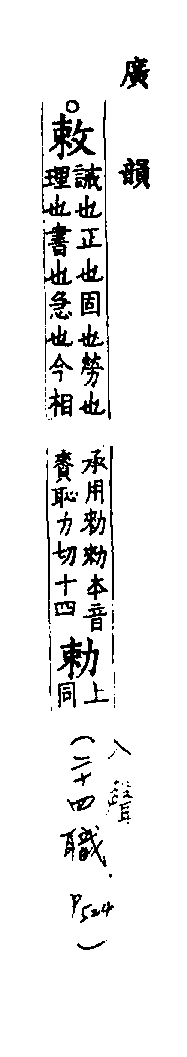 廣韻
○敕
誡也正也固也勞也
理也書也急也今相
承用勑勑本音
賚恥力切十四
勅
上
同
入聲
(二十四職. P524)